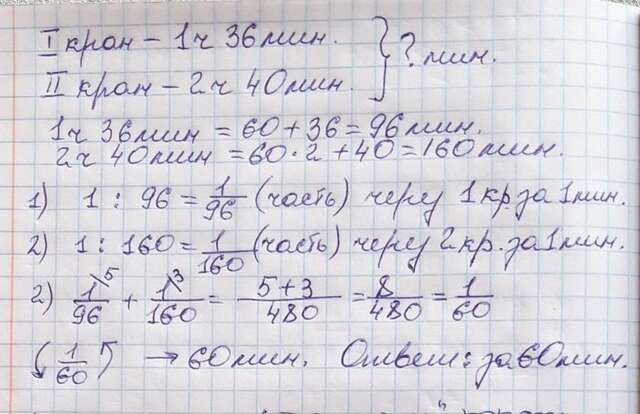 I кран – 1ч 36мин.
II кран – 2ч 40мин. } ? мин.
1ч 36мин = 60+36=96мин.
2ч 40мин =60·2+40=160мин.
1) 1 : 96 = 1/96 (часть) черу 1кр.за 1мин.
2) 1 : 160 = 1/160 (часть) черу 2кр.за1мин.
2) 1\5/96 + 1\3/160 = 5+3/480 = 8/480 = 1/60
(1/60) → 60мин. Ответ: за60мин.